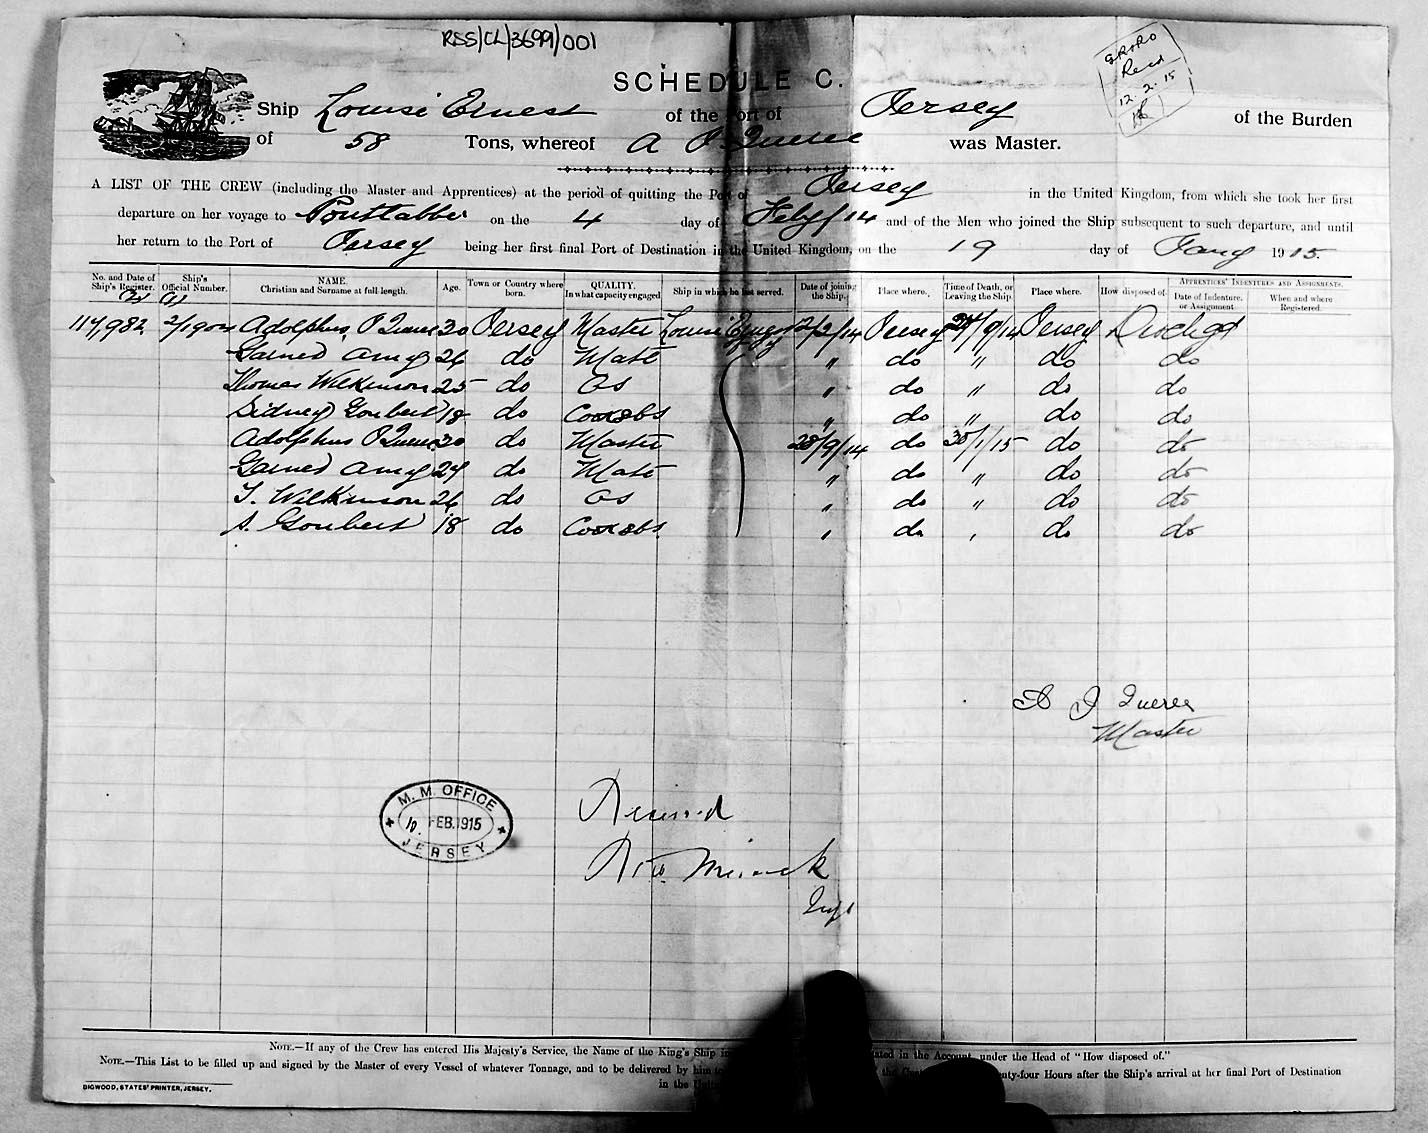 RSS/CL/3699/001
SCHEDULE C.
Recd
12.2.15
Ship Louisi Ernest of the Port of Jersey of the Burden
of 58 Tons, whereof A J Queree was Master.
A LIST OF THE CREW (including the Master and Apprentices) at the period of quitting the Port of Jersey in the United Kingdom, from which she took her first
departure on her voyage to on the 4 day of Feby/14 and of the Men who joined the Ship subsequent to such departure, and until
her return to the Port of Jersey being her first final Port of Destination in the United Kingdom, on the 19 day of Jany 1915.
No. and Date of Ship's Register. Ship's Official Number. NAME. Christian and Surname at full length. Age. Town or Country where born. QUALITY. In what capacity engaged Ship in which he last served. Date of joining the Ship. Place where. Time of Death, or Leaving the Ship. Place where. How disposed of. APPRENTICES' INDENTURES AND ASSIGNMENTS. Date of Indenture, or Assignment When and where Registered.
117,982 2/1904 Adolphus J Queree 30 Jersey Master Louisi 2/2/14 Jersey /9/14 Jersey
Garned Amy 26 do Mate " do " do do
Thomas Wilkinson 25 do Os " do " do do
Sidney Goubert 18 do Cook&bs " do " do do
Adolphus J Queree 30 do Master 28/9/14 do 30/1/15 do do
Garned Amy 27 do Mate " do " do do
T. Wilkinson 26 do Os " do " do do
S. Goubert 18 do Cook&bs " do " do do
A J Queree
Master
M. M. OFFICE
10 FEB. 1915
JERSEY
Received
NOTE.—If any of the Crew has entered His Majesty's Service, the Name of the King's Ship in stated in the Account, under the Head of "How disposed of."
NOTE.—This List to be filled up and signed by the Master of every Vessel of whatever Tonnage, and to be delivered by him to the Twenty-four Hours after the Ship's arrival at her final Port of Destination
in the United
BIGWOOD, STATES' PRINTER, JERSEY.